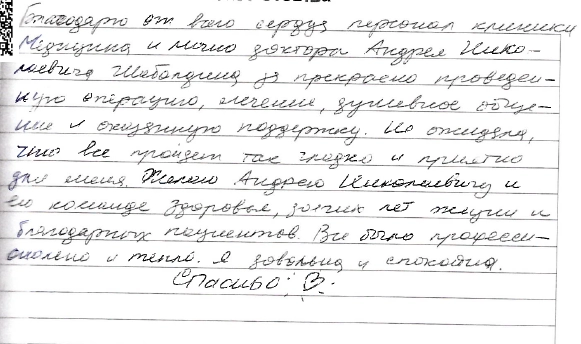 Благодарю от всего сердца персонал клиники
Медицина и лично доктора Андрея Нико-
лаевича Шабалдина за прекрасно проведен-
ную операцию, лечение, душевное обще-
ние и оказанную поддержку. Не ожидала,
что все пройдет так гладко и приятно
для меня. Желаю Андрею Николаевичу и
его команде здоровья, долгих лет жизни и
благодарных пациентов. Все было професси-
онально и тепло. Я довольна и спокойна.
Спасибо!